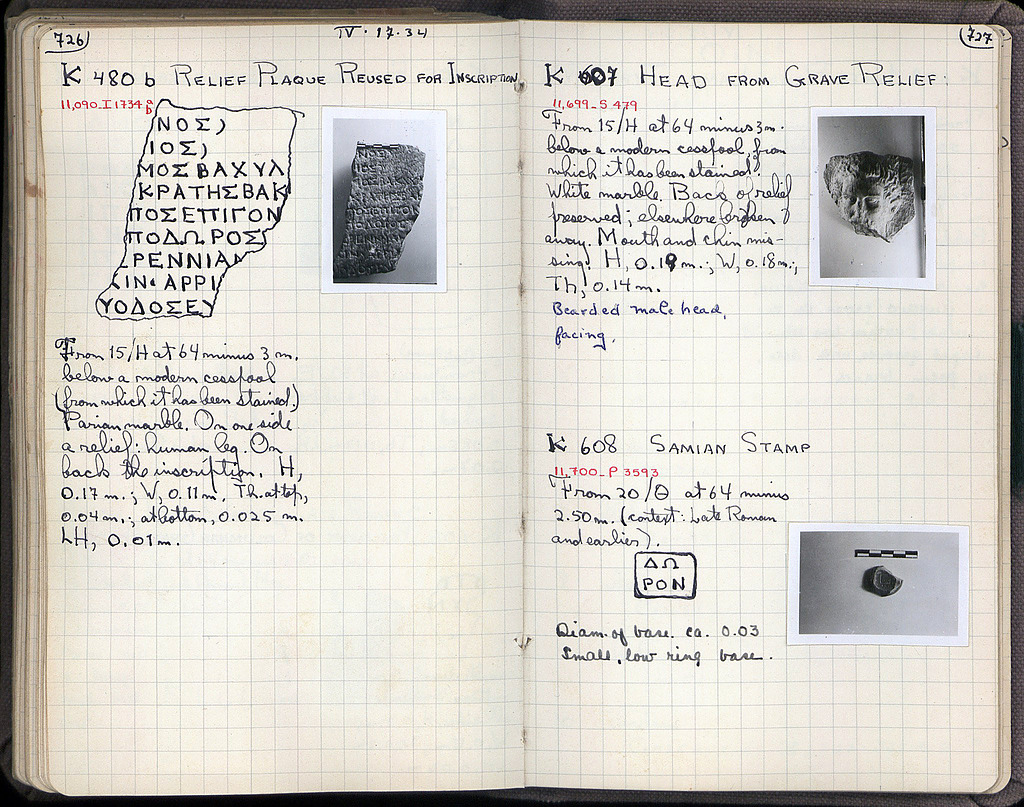 726
IV · 17 · 34
K 480 b RELIEF PLAQUE REUSED FOR INSCRIPTION
11,090 - I 1734 a
b
ΝΟΣ)
ΙΟΣ)
ΜΟΣΒΑΧΥΛ
ΚΡΑΤΗΣΒΑΚ
ΠΟΣΕΠΙΓΟΝ
ΠΟΔΩΡΟΣ
ΡΕΝΝΙΑΝ
ΙΝ ΑΡΡΙ
ΥΟΔΟΣΕΥ
From 15/H at 64 minus 3 m.
below a modern cesspool
(from which it has been stained.)
Parian marble. On one side
a relief: human leg. On
back the inscription. H,
0.17 m.; W, 0.11 m. Th. at top,
0.04 m.; at bottom, 0.025 m.
LH, 0.01 m.
727
K 607 HEAD FROM GRAVE RELIEF:
11,699 - S 479
From 15/H at 64 minus 3 m.
below a modern cesspool, from
which it has been stained.
White marble. Back of relief
preserved; elsewhere broken
away. Mouth and chin mis-
sing. H, 0.19 m.; W, 0.18 m.;
Th, 0.14 m.
Bearded male head,
facing.
K 608 SAMIAN STAMP
11,700 - P 3593
From 20/Θ at 64 minus
2.50 m. (context: Late Roman
and earlier).
ΔΩ
ΡΟΝ
Diam. of base. ca. 0.03
Small, low ring base.